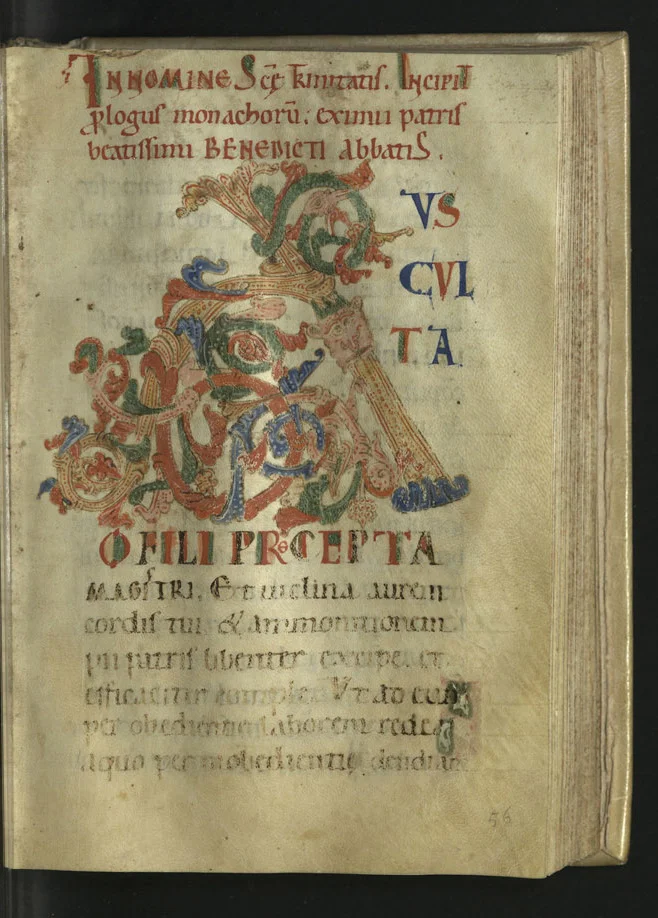 IN NOMINE Scę Trinitatis. Incipit
plogus monachorū. eximii patris
beatissimi BENEDICTI abbatis.
AUS
CUL
TA
O FILI PRECEPTA
MAGISTRI. Et inclina aurem
cordis tui & ammonitionem
pii patris libenter excipe. et
efficaciter comple. Vt ad eum
per obedientię laborem redeas
a quo per inobedientię desidiam
56